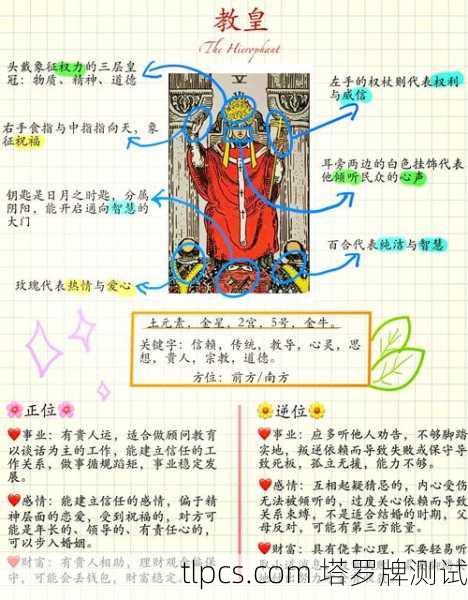 教皇
The Hierophant
头戴象征权力的三层皇
冠：物质、精神、道德
右手食指与中指指向天，象
征祝福
钥匙是日月之时匙，分属
阴阳，能开启通向智慧的
大门
玫瑰代表热情与爱心
V
左手的权杖则代表权利
与威信
耳旁两边的白色挂饰代表
他倾听民众的心声
百合代表纯洁与智慧
土元素，金星，2宫，5号，金牛。
关键字：信赖，传统，教导，心灵，思
想，贵人，宗教，道德。
方位：前方/南方
正位
事业：有贵人运，适合做顾问教育
以谈话为主的工作，能建立信任的工
作关系，做事循规蹈矩，事业稳定发
展。
感情：能建立信任的感情，偏于精
神层面的恋爱，受到祝福的，对方可
能是年长的、领导的、有责任心的，
可以步入婚姻。
财富：有贵人相助，理财观念偏保
守，可能会丢钱包，财富稳定。
逆位
事业：应多听他人劝告，不够脚踏
实地，叛逆依赖而导致失败或保守导
致死板，孤立无援，能力不够。
感情：互相起疑猜忌的，内心受伤
无法被倾听的，过度关心依赖而导致
关系束缚，不是适合结婚的时期，父
母反对，可能有第三方能量。
财富：具有侥幸心理，不要轻易听
ttpcs.com 塔罗牌测试